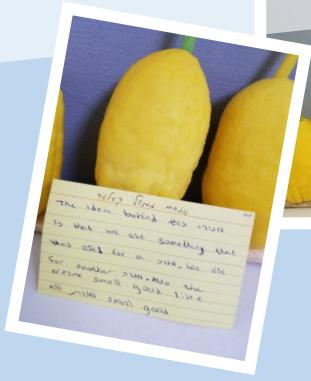 The idea behind this מצוה
is that we use something that
was used for a מצוה, we use
for another מצוה. Also the
smell good like
all smell good